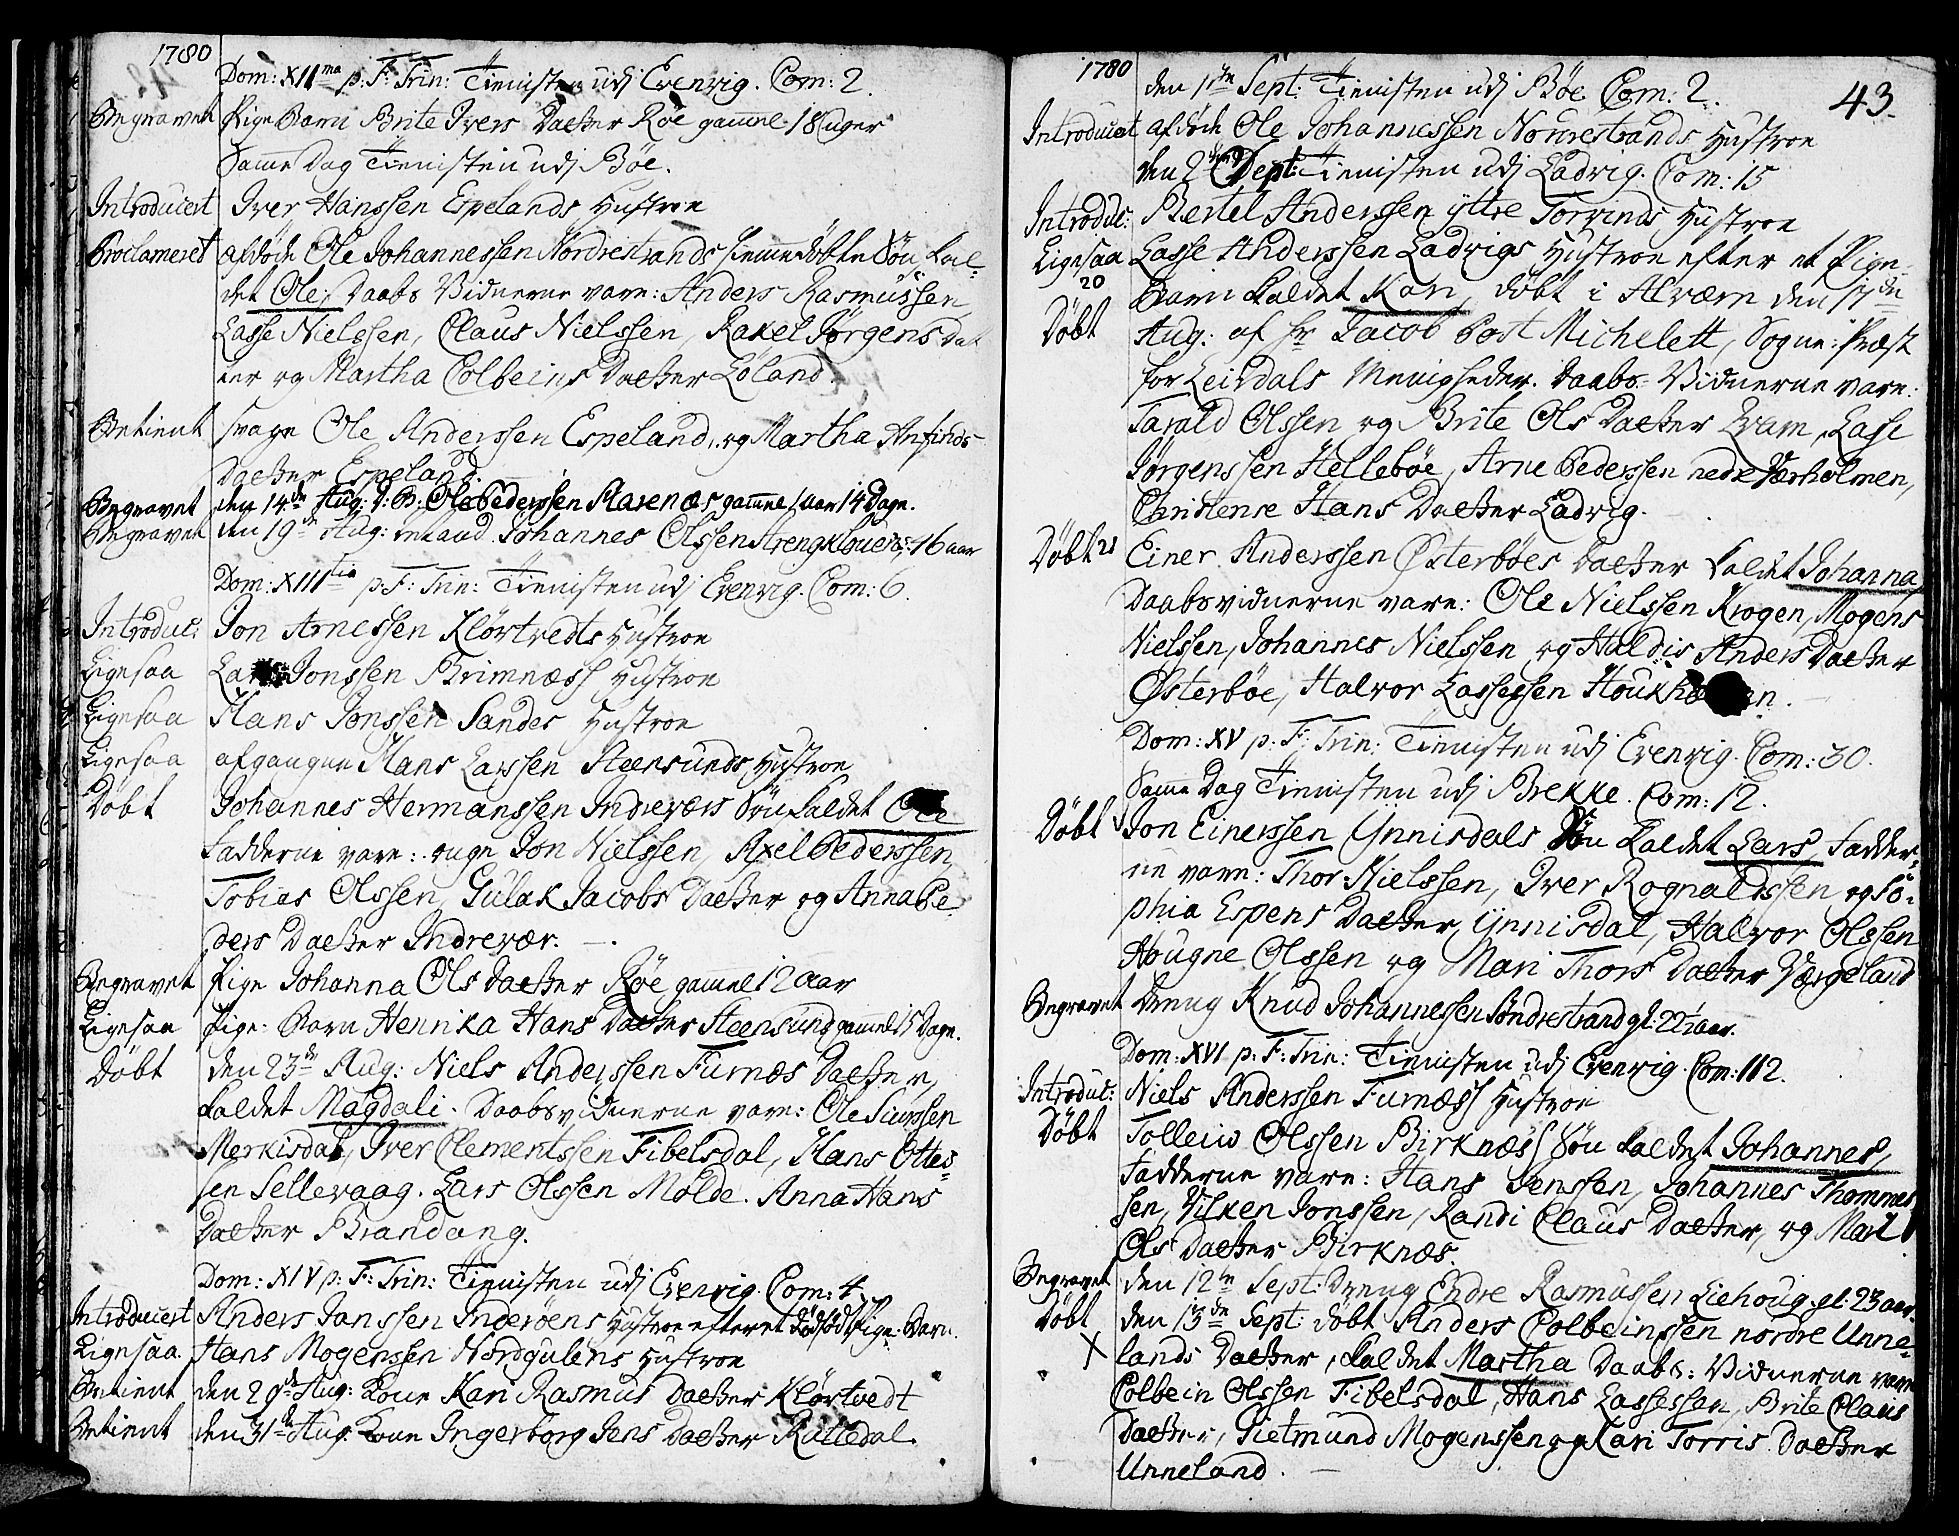 1780
Dom: XII ma p. F: Trin: Tienisten udj Evenvig. Com: 2.
Begravet Pige Barn Brite Ivers Datter Röe gamel 18 uger
Same Dag Tienisten udj Böe.
Introducert Iver Hanssen Espelands Hustroe
Proclameret afdöde Ole Johannessen Nordrestrands hiemedöbte Sön kal-
det Ole, Daabs Vidnerne vare: Anders Rasmussen,
Lasse Nielssen, Claus Nielssen, Rakel Jörgens Dat
ter og Martha Colbeins Datter Löland.
Betient svage Ole Anderssen Espeland, og Martha Anfinds-
Datter Espeland.
Begravet den 14de Aug: Ole Pederssen Slarenæs gamel 1 aar 14 Dage.
Begravet den 19de Aug: Johannes Olssen 16 aar
Dom: XIII tia p: F: Trin: Tienisten udj Evenvig. Com: 6.
Introduc: Jon Arnessen Klörtvedts Hustroe
Ligesaa Lars Jonssen Brimnæss Hustroe
Ligesaa Hans Jonssen Sandes Hustroe
Ligesaa afgangne Hans Larssen Steensunds Hustroe
Döbt Johannes Hermanssen Indreværs Sön kaldet Ole
Fadderne vare: unge Jon Nielssen, Axel Pederssen
Tobias Olssen, Gulak Jacobs Datter og Anna Pe-
ders Datter Indrevær.
Begravet Pige Johanna Ols Datter Röe gamel 12 aar
Ligesaa Pige: Barn Henrika Hans Datter Steensund gamel 15 Dage.
Döbt den 23de Aug: Niels Anderssen Furnæs Datter,
kaldet Magdali. Daabsvidnerne vare: Ole Siurssen
Merkisdal, Iver Clementssen Fibelsdal, Hans Ottes-
sen Sellevaag. Lars Olssen Molde. Anna Hans
Datter Brandang.
Dom: XIV p: F: Trin: Tienisten udj Evenvig. Com: 4.
Introducert Anders Janssen Inderöens Hustroe efter et dödfödt Pige-Barn.
Ligesaa Hans Mogenssen Nordgulens Hustroe
Betient den 29de Aug: Kone Kari Rasmus Datter Klörtvedt
Betient den 31te Aug: Kone Ingerborg Jens Datter Rattedal.
1780 43.
den 1te Sept: Tienisten udj Böe Com: 2.
Introducert afdöde Ole Johannessen Nordrestrands Hustroe
den 2den Sept: Tienisten udj Ladvig. Com: 15
Introduc: Bertel Anderssen yttre Torvinds Hustroe
Ligesaa Lasse Anderssen Ladvigs Hustroe efter et Pige-
20 Barn kaldet Kari, döbt i Alværn den 17de
Döbt Aug: af Hr Jacob Post Michelett, Sogne: Præst
for Leirdals Menigheder. Daabs-Vidnerne vare:
Tarald Olssen og Brite Ols Datter Evam, Lasse
Jörgenssen Helleböe, Arne Pederssen nedre Værholmen,
Christense Hans Datter Ladvig.
Döbt 21 Einer Anderssen Österböes Datter kaldet Johanna
Daabsvidnerne vare: Ole Nielssen Krogen, Mogens
Nielssen, Johannes Nielssen og Haldis Anders Datter
Österböe, Halvor Lassessen
Dom: XV p: F: Trin: Tienisten udj Evenvig. Com: 30.
Same Dag Tienisten udj Brekke. Com: 12.
Döbt Jon Einerssen Ynnisdals Sön kaldet Lars, Fadder-
ne vare: Thor Nielssen, Iver Rognaldssen og So-
phia Espens Datter Ynnisdal, Halvor Olssen
Hougne Olssen og Mari Thors Datter Værgeland
Begravet Dreng Knud Johannessen Söndrestrand gl: 22½ aar.
Dom: XVI p: F: Trin: Tienisten udj Evenvig. Com: 112.
Introduc: Niels Anderssen Furnæss Hustroe
Döbt Tolleiv Olssen Birknæss Sön kaldet Johannes,
Fadderne vare: Hans Jenssen, Johannes Thommes
sen, Vilken Jonssen, Randi Claus Datter, og Mari
Ols Datter Birknæs.
Begravet den 12te Sept: Dreng Endre Rasmussen Liehoug gl: 23 aar.
Döbt den 13de Sept: döbt Anders Colbeinssen nordre Unne-
X lands Datter, kaldet Martha Daabs: Vidnerne vare
Colbein Olssen Fibelsdal, Hans Lassessen, Brite Claus
Datter, Gietmund Mogenssen og Kari Torris Datter
Unneland.